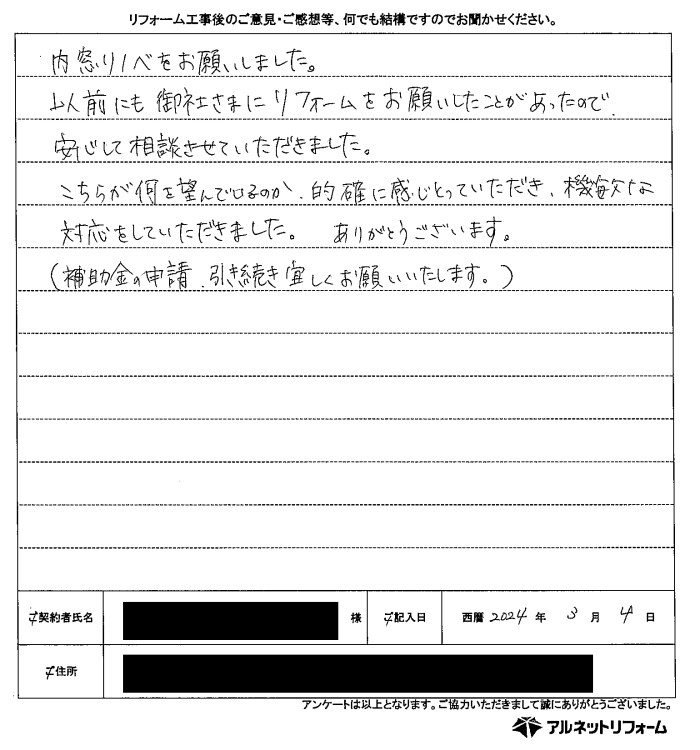 リフォーム工事後のご意見・ご感想等、何でも結構ですのでお聞かせください。
内窓リノベをお願いしました。
以前にも御社さまにリフォームをお願いしたことがあったので、
安心して相談させていただきました。
こちらが何を望んでいるのか、的確に感じとっていただき、機敏な
対応をしていただきました。 ありがとうございます。
(補助金の申請、引き続き宜しくお願いいたします。)
ご契約者氏名 様 ご記入日 西暦 2024 年 3 月 4 日
ご住所
アンケートは以上となります。ご協力いただきまして誠にありがとうございました。
アルネットリフォーム